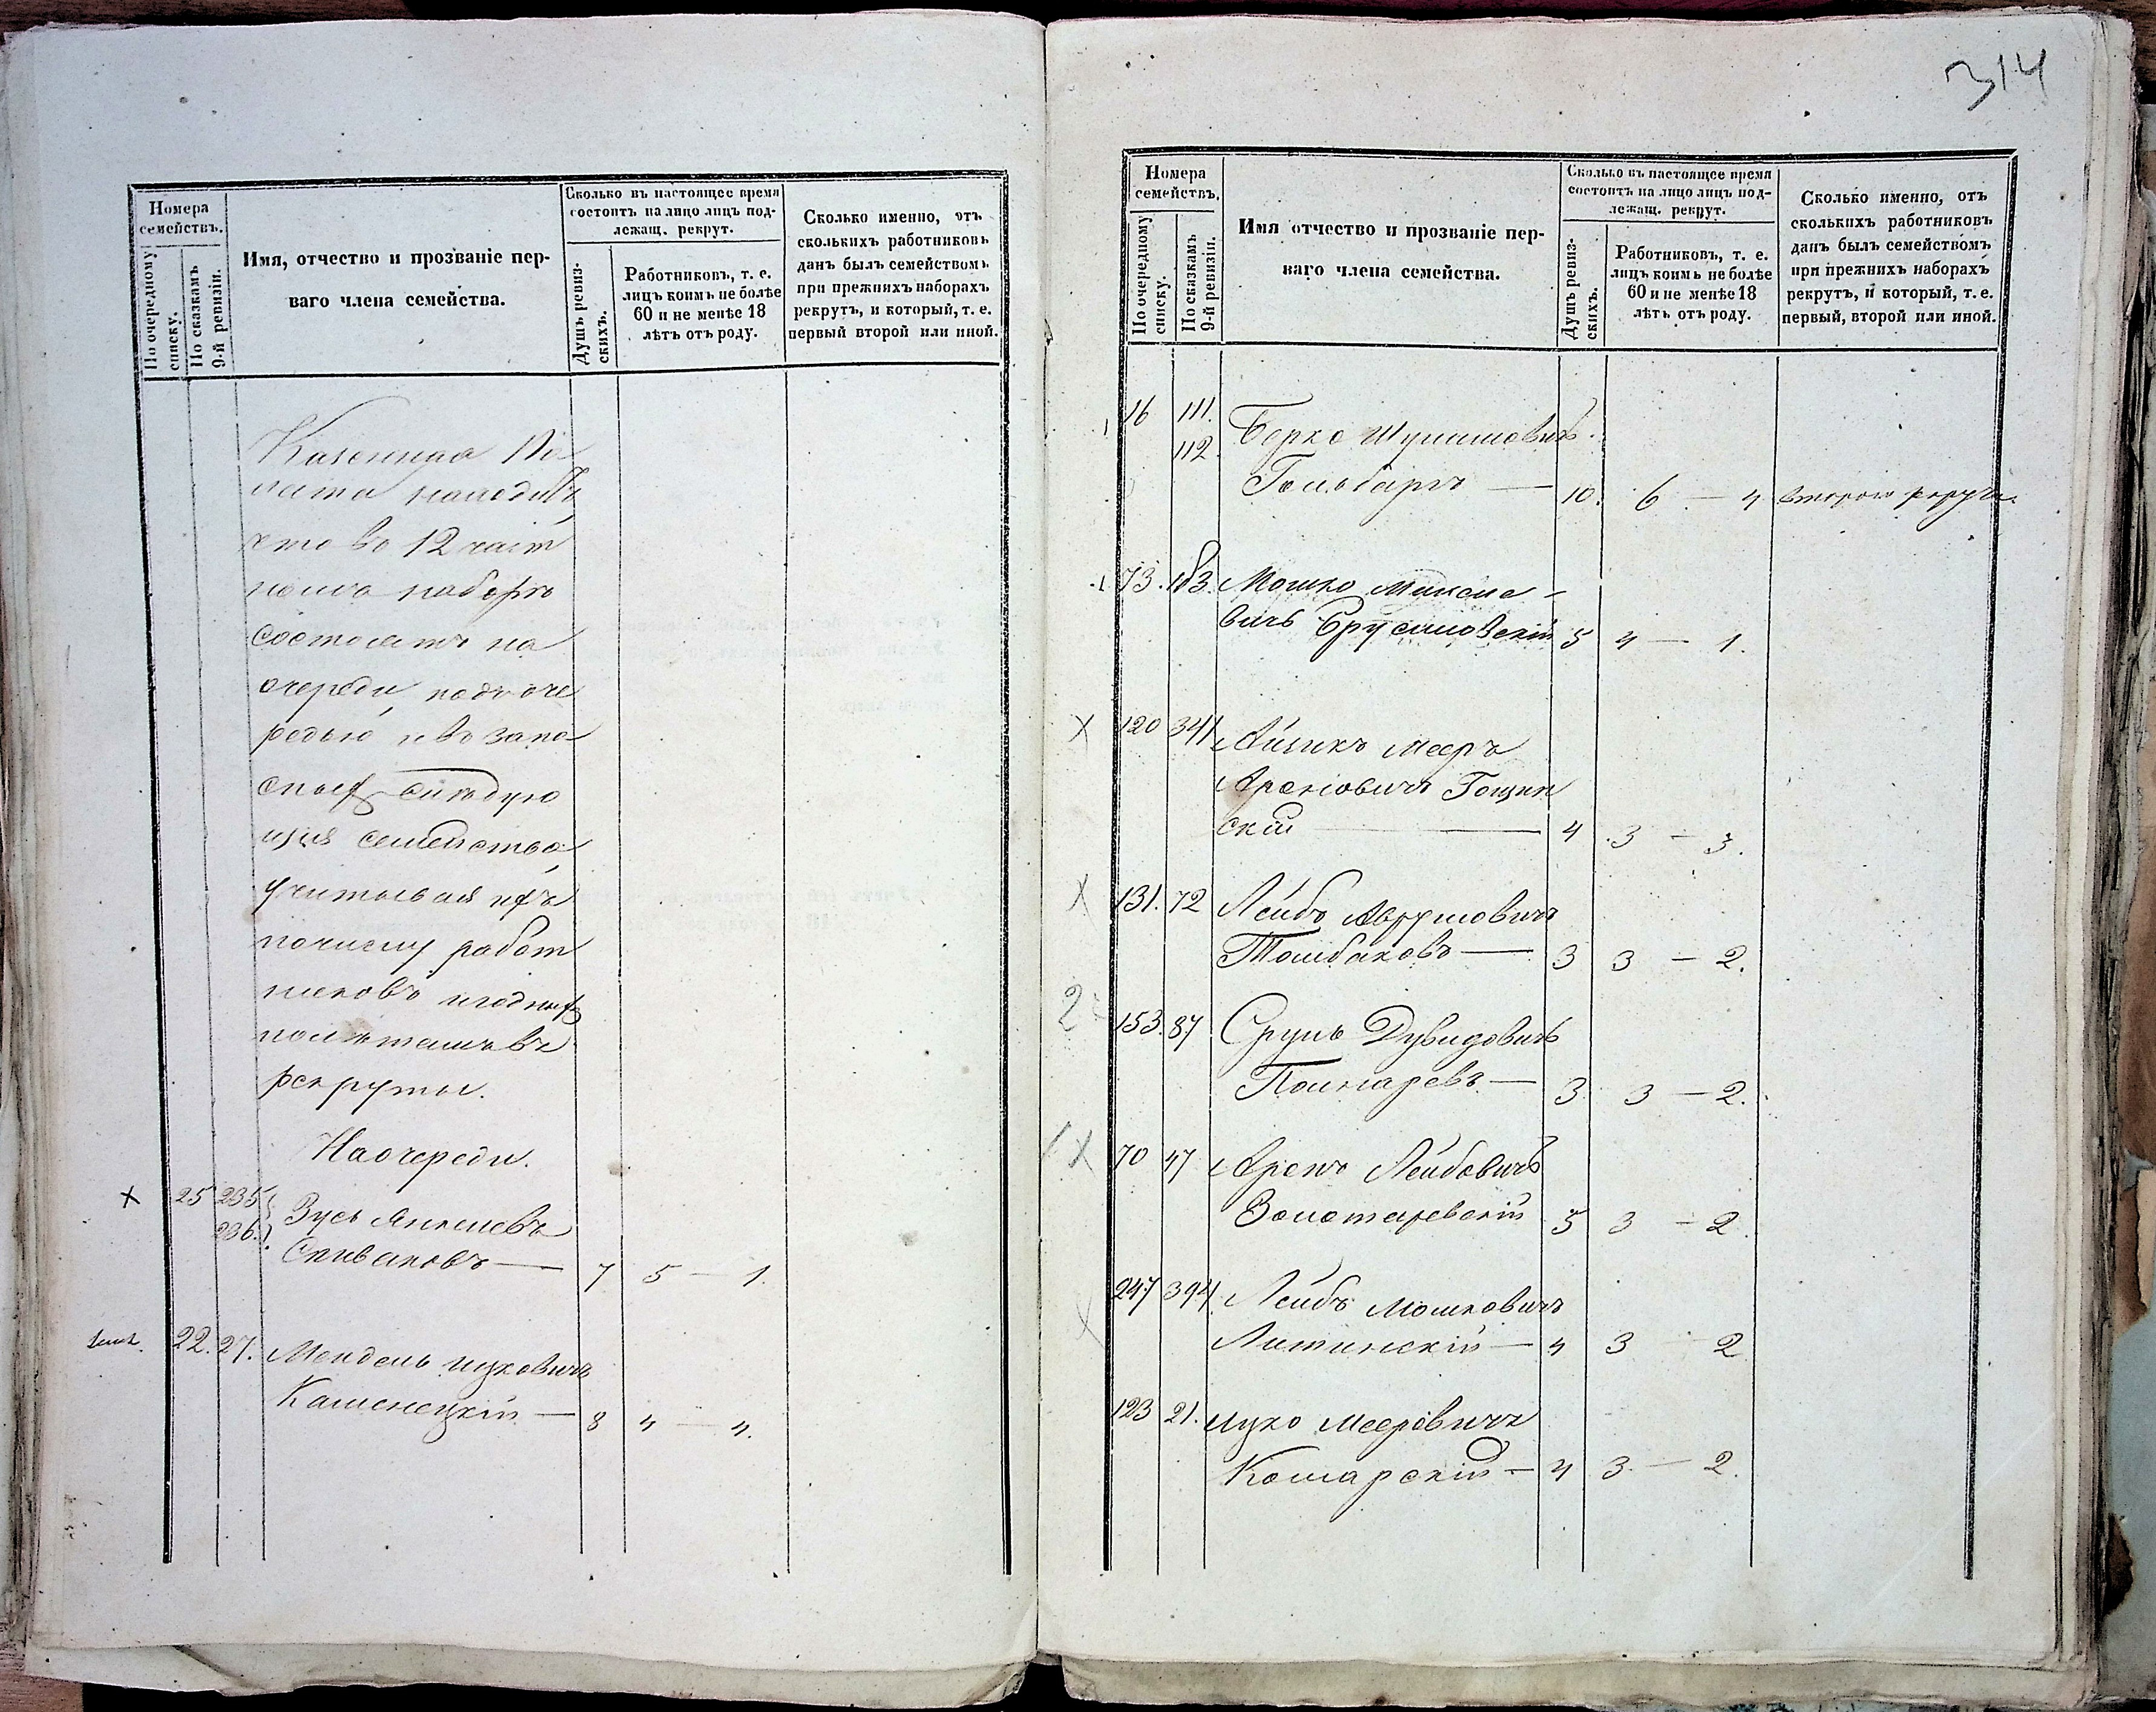 Номера
семействъ.
По очередному
списку.
По сказкамъ
9-й ревизіи.
Имя, отчество и прозваніе пер-
ваго члена семейства.
Сколько въ настоящее время
состоитъ на лицо лицъ под-
лежащ. рекрут.
Душъ ревиз-
скихъ.
Работниковъ, т. е.
лицъ коимъ не болѣе
60 и не менѣе 18
лѣтъ отъ роду.
Сколько именно, отъ
сколькихъ работниковъ
данъ былъ семействомъ
при прежнихъ наборахъ
рекрутъ, и который, т. е.
первый второй или иной.
Казенная Па
лата находитъ,
что во 12 част
наборъ
состоятъ на
очереди, подъ оче
редью и въ запа
сныхъ слѣдую
щія семейства,
учитывая ихъ
по числу работ
никовъ и годныхъ
въ
рекруты.
На очереди.
25 235
236. Зусь Янкелевъ
Спиваковъ — 7 5 — 1.
22. 27. Мендель Ицковичъ
Каменецкій — 8 4 — 4.
314
Номера
семействъ.
По очередному
списку.
По сказкамъ
9-й ревизіи.
Имя отчество и прозваніе пер-
ваго члена семейства.
Сколько въ настоящее время
состоитъ на лицо лицъ под-
лежащ. рекрут.
Душъ ревиз-
скихъ.
Работниковъ, т. е.
лицъ коимъ не болѣе
60 и не менѣе 18
лѣтъ отъ роду.
Сколько именно, отъ
сколькихъ работниковъ
данъ былъ семействомъ
при прежнихъ наборахъ
рекрутъ, и который, т. е.
первый, второй или иной.
16 111.
112. Берко
10. 6 — 4 втораго рекрута.
73. 183. Мошко
вичъ Брусиловскій 5 4 — 1.
120 341 Айзикъ Мееръ
Ароновичъ Гощин
скій — 4 3 — 3.
131. 72 Лейбъ Аврумовичъ
Толмбаковъ — 3 3 — 2.
2
153. 87 Сруль Дувидовичъ
3 3 — 2.
70 47 Аронъ Лейбовичъ
Золотаревскій 5 3 — 2.
247 394 Лейбъ Мошковичъ
Литинскій — 4 3 2
123 21. Ицко Мееровичъ
Комарскій — 4 3. — 2.